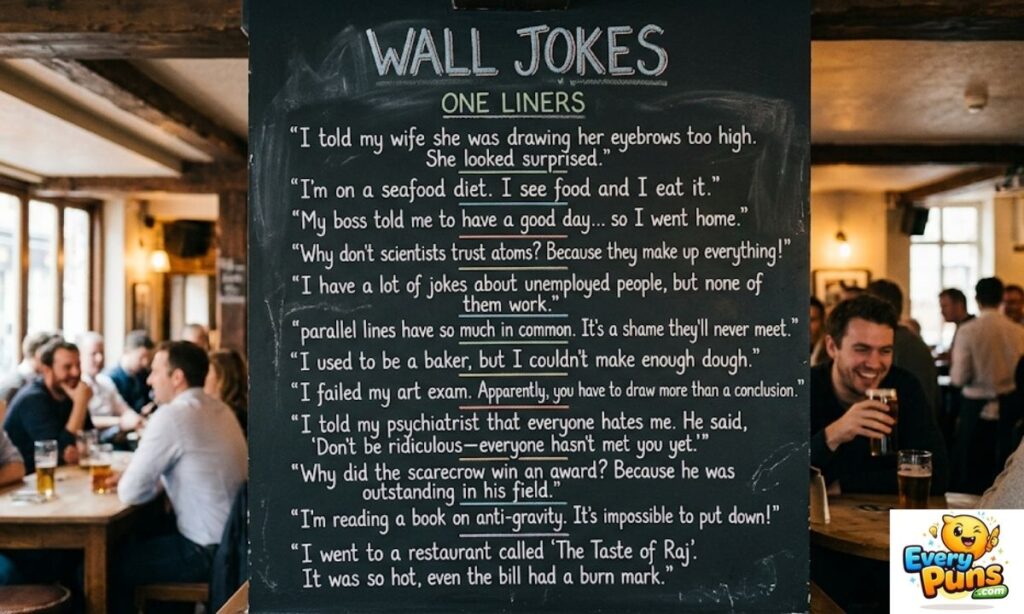 WALL JOKES
ONE LINERS
“I told my wife she was drawing her eyebrows too high.
She looked surprised.”
“I'm on a seafood diet. I see food and I eat it.”
“My boss told me to have a good day... so I went home.”
“Why don't scientists trust atoms? Because they make up everything!”
“I have a lot of jokes about unemployed people, but none of
them work.”
“parallel lines have so much in common. It's a shame they'll never meet.”
“I used to be a baker, but I couldn't make enough dough.”
“I failed my art exam. Apparently, you have to draw more than a conclusion.”
“I told my psychiatrist that everyone hates me. He said,
‘Don't be ridiculous—everyone hasn't met you yet.’”
“Why did the scarecrow win an award? Because he was
outstanding in his field.”
“I'm reading a book on anti-gravity. It's impossible to put down!”
“I went to a restaurant called ‘The Taste of Raj’.
It was so hot, even the bill had a burn mark.”
Every
Puns
.com